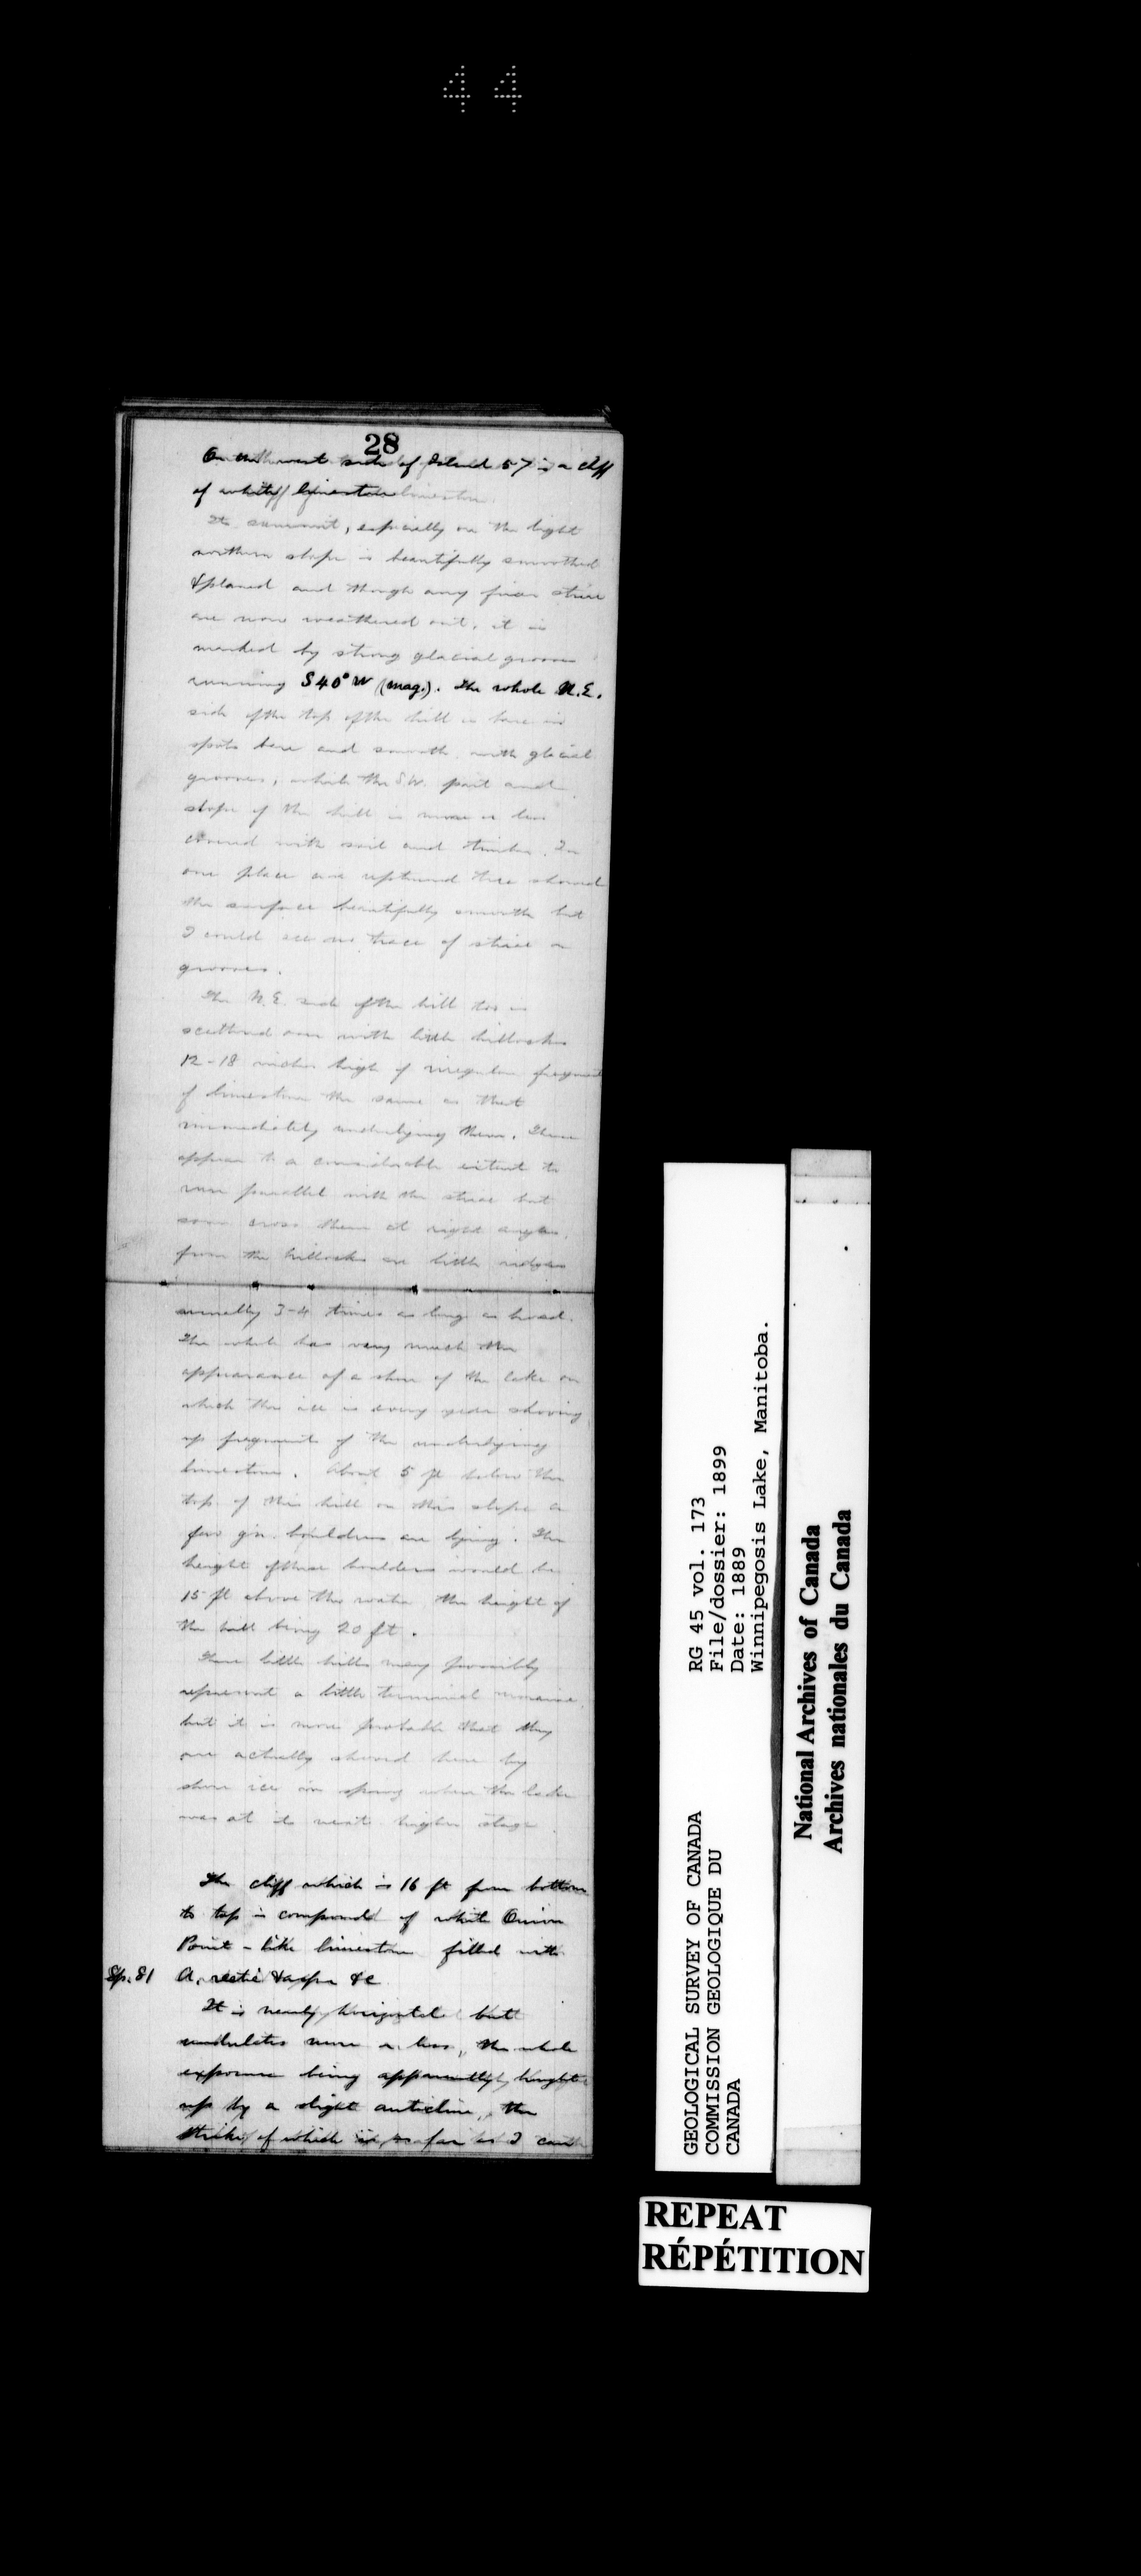 44
28
On the west side of Island 57 is a cliff
of white limestone
Its summit, especially on the light
northern slope is beautifully smoothed
& planed and though any finer striae
are now weathered out, it is
marked by strong glacial grooves
running S40°W (mag.). The whole N.E.
side of the top of the hill is bare in
spots bare and smooth with glacial
grooves, while the S.W. part and
slope of the hill is more or less
covered with soil and timber. In
one place an upturned tree showed
the surface beautifully smooth but
I could see no trace of striae or
grooves.
The N.E. side of the hill too is
scattered over with little hillocks
12-18 inches high of irregular fragments
of limestone the same as that
immediately underlying them. These
appear to a considerable extent to
run parallel with the striae but
some cross them at right angles.
from the hillocks are little ridges
usually 3-4 times as long as broad.
The whole has very much the
appearance of a shore of the lake on
which the ice is every year shoving
up fragments of the underlying
limestone. About 5 ft below the
top of this hill on this slope a
few gn. boulders are lying. The
height of these boulders would be
15 ft above the water the height of
the hill being 20 ft.
These little hills may possibly
represent a little terminal moraine,
but it is more probable that they
are actually shoved here by
shore ice in spring when the lake
was at its next higher stage.
The cliff which is 16 ft from bottom
to top is composed of white
Point-like limestone filled with
Sp. 81 A. &c
It is nearly horizontal but
undulates more or less, the whole
exposure being apparently brought
up by a slight anticline, the
strike of which is, so far as I can
RG 45 vol. 173
File/dossier: 1899
Date: 1889
Winnipegosis Lake, Manitoba.
GEOLOGICAL SURVEY OF CANADA
COMMISSION GEOLOGIQUE DU
CANADA
National Archives of Canada
Archives nationales du Canada
REPEAT
RÉPÉTITION